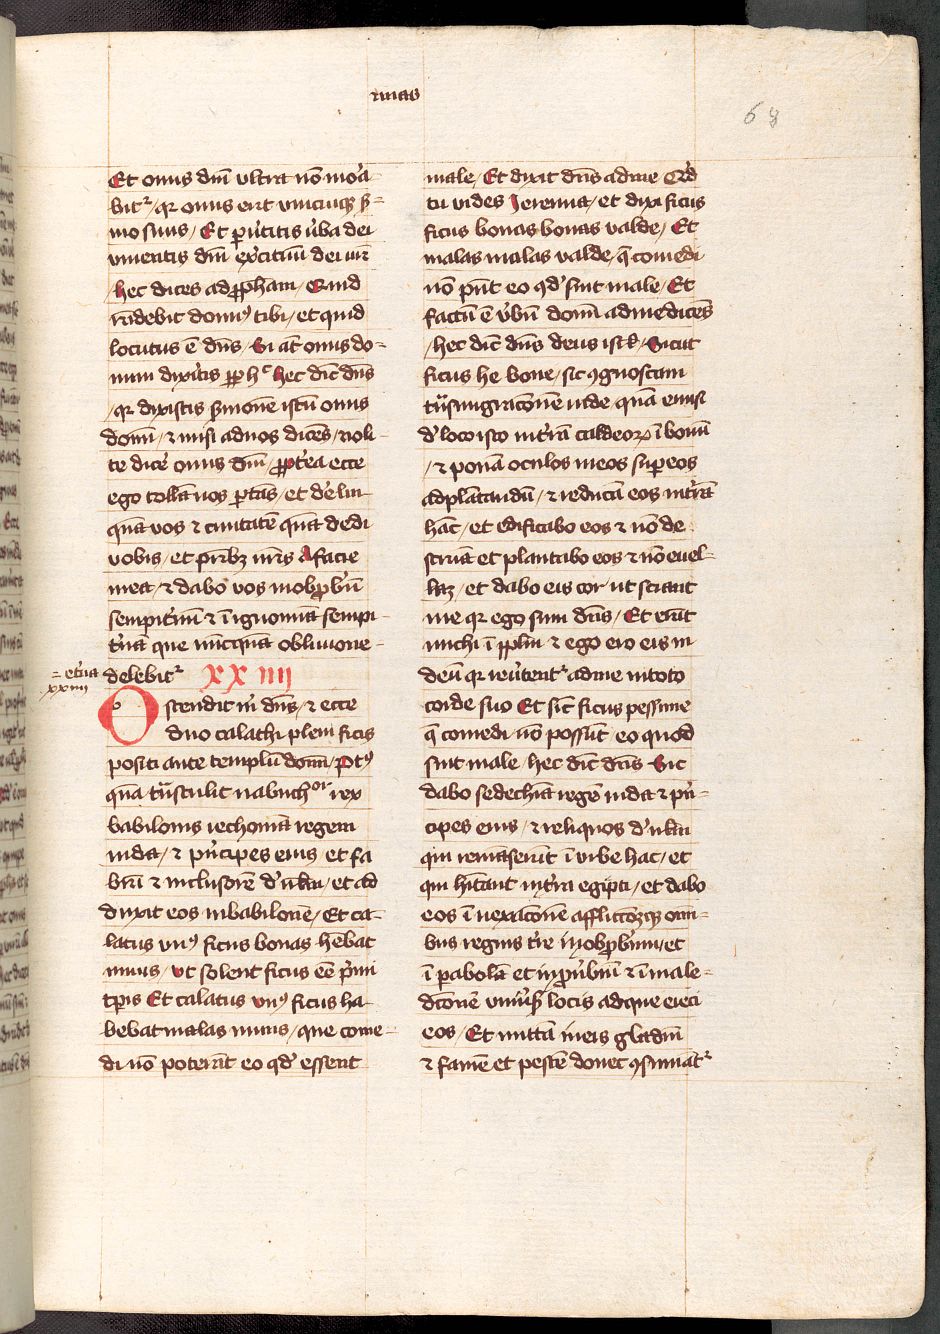 rmias
68
Et onus dm̄ ultra nō mora-
bitᵉ / qr onus erit unicuiqꝫ s̄-
mo suus / Et puertitis uba dei
uiuentis dm̄ exercituū dei nr̄i
/ hec dices ad ꝓpham / Quid
respōdebit domiꝰ tibi / et quid
locutus ē dn̄s / Si at̄ onus do-
mini dixitis ꝓp hᶜ hec dic̄ dn̄s
/ qr dixistis s̄monē istū onus
domī / ⁊ misi ad uos dicēs / noli-
te dicē onus dm̄ / ꝓpterea ecce
ego tollā uos portās / et derelin-
quā vos ⁊ ciuitatē quā dedi
vobis / et pr̄ibꝫ ur̄is A facie
mea / ⁊ dabo vos in obprobriū
sempitnū ⁊ ī ignomiā sempi-
tnā que nūcquā obliuione-
= etna delebitᵉ XX iiii
xxiiii
Ostendit mͥ dn̄s / ⁊ ecce
duo calathi pleni ficis
positi ante templū domī / Ptꝰ
quā tn̄stulit nabuchᵒʳ rex
babilonis iechoniā regem
iuda / ⁊ pn̄cipes eius et fa-
brū ⁊ inclusorē d' irlm̄ / et ad
duxit eos in babilonē / Et ca-
latus vnꝰ ficus bonas hēbat
nimis / Vt solent ficus eē pͥmi
tp̄is Et calatus vnꝰ ficus ha-
bebat malas nimis / que come-
di nō poterāt eo qd' essent
male / Et dixit dn̄s ad me Qͥd
tu vides Jeremia / et dixi ficus
ficus bonas bonas valde / Et
malas malas valde / q̄ comedi
nō pn̄t eo qd' sint male / Et
factū ē ubū domī ad me dicēs
/ hec dic̄ dn̄s deus isrl̄ / Sicut
ficus he bone / sic ꝯgnoscam
tn̄smigracōnē iude / quā emisi
d' loco isto in trā caldeoꝝ ī bonū
/ ⁊ ponā oculos meos super eos
ad placandū / ⁊ reducā eos in trā
hāc / et edificabo eos ⁊ nō de-
struā et plantabo eos ⁊ nō euel-
lā / et dabo eis cor ut sciant
me qr ego sum dn̄s / Et erūt
michi ī ppl̄m ⁊ ego ero eis in
deū qr reutentᵉ ad me in toto
corde suo Et sic̄ ficus pessime
q̄ comedi nō possūt eo quod
sint male / hec dic̄ dn̄s Sic
dabo sedechiā regē iuda ⁊ pn̄-
cipes eius / ⁊ reliquos d' irlm̄
qui remāserūt ī urbe hac / et
qui hītant in tra egipti / et dabo
eos ī uexacōnē afflictōꝫqꝫ om̄-
bus regnis tre in obprobriū / et
ī pabolā et in prubiū ⁊ ī male-
dcōnē uniuˢis locis ad que eieci
eos / Et mittā in eis gladiū
⁊ famē et pestē donec ꝯsumātᵉ